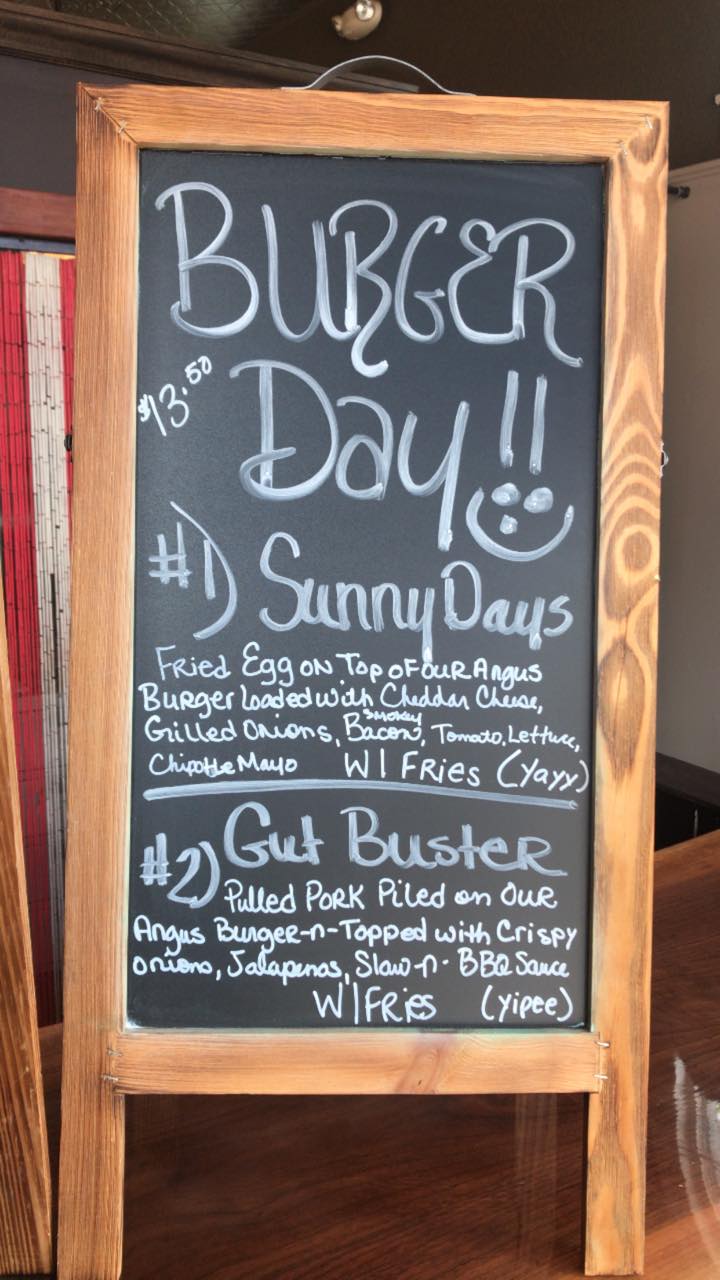 BURGER
$13.50
Day!!
#1) Sunny Days
Fried Egg on Top of our Angus
Burger Loaded with Cheddar Cheese,
Grilled Onions, Smokey Bacon, Tomato, Lettuce,
Chipotle Mayo W/ Fries (Yayy)
#2) Gut Buster
Pulled Pork Piled on Our
Angus Burger-n-Topped with Crispy
onions, Jalapenos, Slaw-n-BBQ Sauce
W/Fries (yipee)